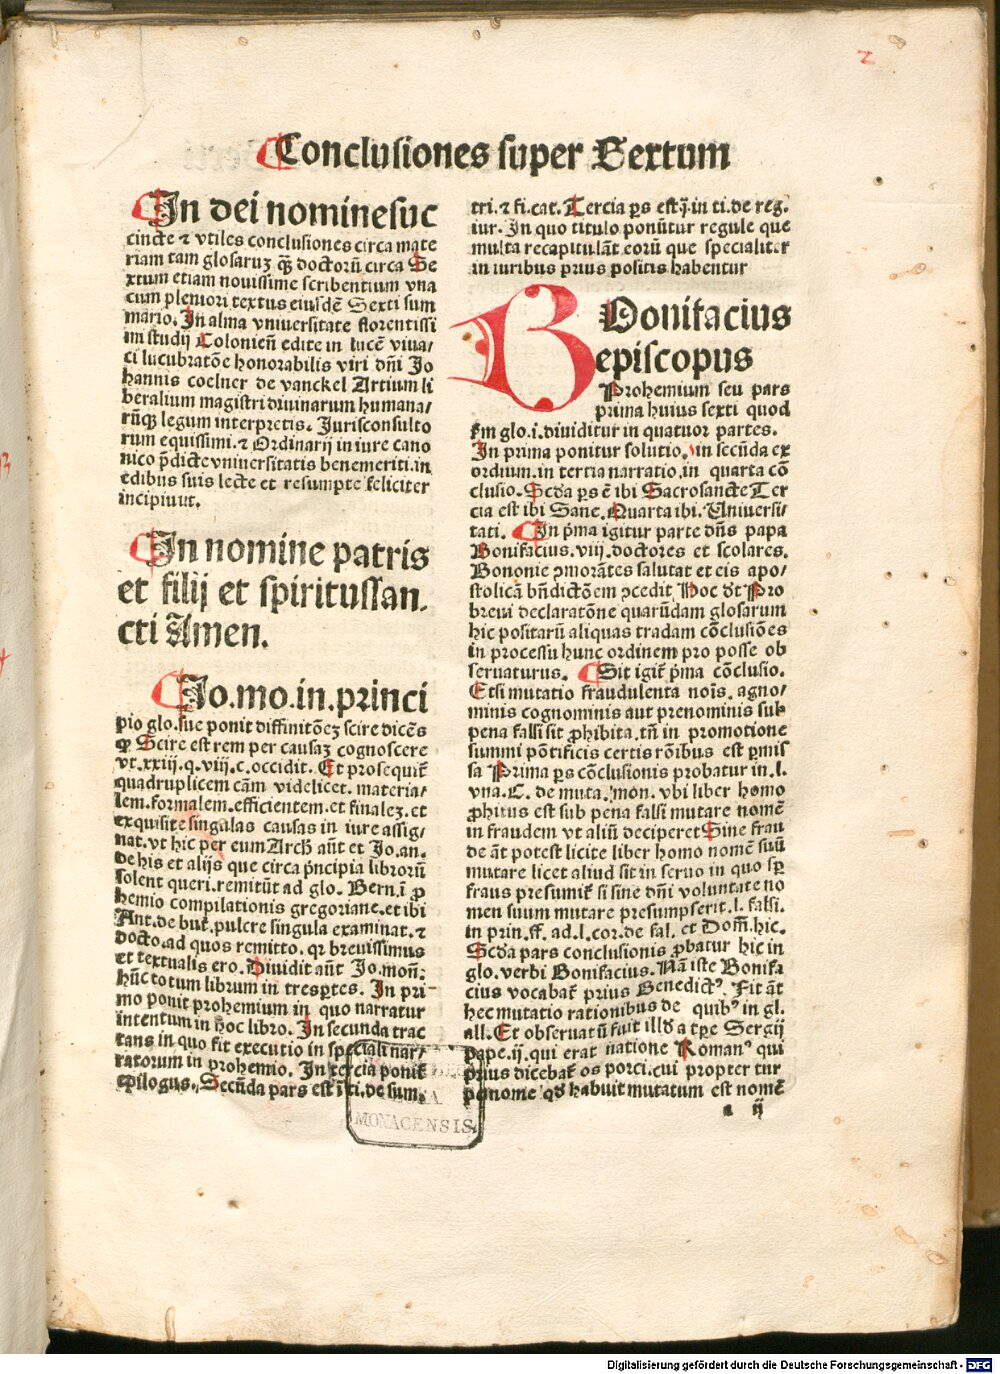 2
Conclusiones super Sextum
In dei nomine suc
cincte ⁊ vtiles conclusiones circa mate
riam tam glosaruꝫ qꝫ̃ doctorũ circa Se
xtum etiam nouissime scribentium vna
cum pleniori textus eiusdẽ Sexti sum
mario. In alma vniuersitate florentissi
mi studij Colonieñ edite in lucẽ viua/
ci lucubratõe honorabilis viri dñi Jo
hannis coelner de vanckel Artium li
beralium magistri diuinarum humana/
rũqꝫ legum interpretis. Jurisconsulto
rum equissimi. ⁊ Ordinarij in iure cano
nico p̃dicte vniuersitatis benemeriti. in
edibus suis lecte et resumpte feliciter
incipiunt.
In nomine patris
et filij et spiritussan.
cti Amen.
Jo. mo. in. princi
pio glo. sue ponit diffinitõeꝫ scire dicẽs
ꝙ Scire est rem per causaꝫ cognoscere
vt. xxiij. q. viij. c. occidit. Et prosequit᷑
quadruplicem cãm videlicet. materia/
lem. formalem. efficientem. et finaleꝫ. et
exquisite singulas causas in iure assig/
nat. vt hic per eum Arch aũt et Jo. an.
de his et alijs que circa p̃ncipia librorũ
solent queri. remitũt ad glo. Bern. ĩ ꝓ
hemio compilationis gregoriane. et ibi
Ant. de but᷑. pulcre singula examinat. ⁊
docto. ad quos remitto. qꝛ breuissimus
et textualis ero. Diuidit aũt Jo. moñ.
hũc totum librum in tres ꝑtes. In pri-
mo ponit prohemium in quo narratur
intentum in hoc libro. In secunda trac
tans in quo fit executio in speciali nar/
ratorum in prohemio. In tercia ponit᷑
epilogus. Secũda pars est ĩ ti. de sum.
tri. ⁊ fi. cat. Tercia ꝑs est ĩ q̃. in ti. de reg.
iur. In quo titulo ponũtur regule que
multa recapitulãt eorũ que specialiter
in iuribus prius positis habentur
BOnifacius
episcopus
Prohemium seu pars
prima huius sexti quod
ẜm glo. i. diuiditur in quatuor partes.
In prima ponitur solutio. in secũda ex
ordium. in tertia narratio. in quarta cõ
clusio. Scd̃a ꝑs ẽ ibi Sacrosancte Ter
cia est ibi Sane. Quarta ibi. Uniuersi/
tati. In p̃ma igitur parte dñs papa
Bonifacius. viij. doctores et scolares.
Bononie ꝯmorãtes salutat et eis apo/
stolicam bñdictõem ꝯcedit Hoc d̃t Pro
breui declaratõne quarũdam glosarum
hic positarũ aliquas tradam cõclusiões
in processu hunc ordinem pro posse ob
seruaturus. Sit igit᷑ p̃ma cõclusio.
Etsi mutatio fraudulenta noĩs. agno/
minis cognominis aut prenominis sub
pena falsi sit ꝓhibita. tñ in promotione
summi põtificis certis rõibus est ꝑmis
sa Prima ꝑs cõclusionis probatur in. l.
vna. C. de muta. mon. vbi liber homo
ꝓhitus est sub pena falsi mutare nomẽ
in fraudem vt aliũ deciperet Sine frau
de ãt potest licite liber homo nomẽ suũ
mutare licet aliud sit in seruo in quo sꝑ
fraus presumit᷑ si sine dñi voluntate no
men suum mutare presumpserit. l. falsi.
in prin. ff. ad. l. cor. de fal. et Dom̃. hic.
Scd̃a pars conclusionis ꝓbatur hic in
glo. verbi Bonifacius. Nã iste Bonifa
cius vocabat᷑ prius Benedictꝰ. Fit ãt
hec mutatio rationibus de quibꝰ in gl.
all. Et obseruatũ fuit illd̃ a tꝑe Sergij
pape. ij. qui erat natione Romanꝰ qui
prius dicebat᷑ os porci. cui propter tur
penome qd̃ habuit mutatum est nomẽ
a ij
MONACENSIS.
Digitalisierung gefördert durch die Deutsche Forschungsgemeinschaft - DFG